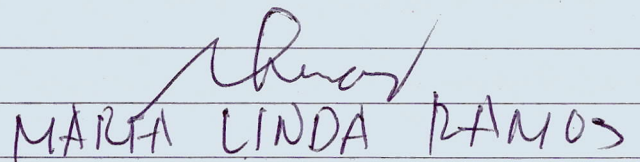 MARIA LINDA RAMOS